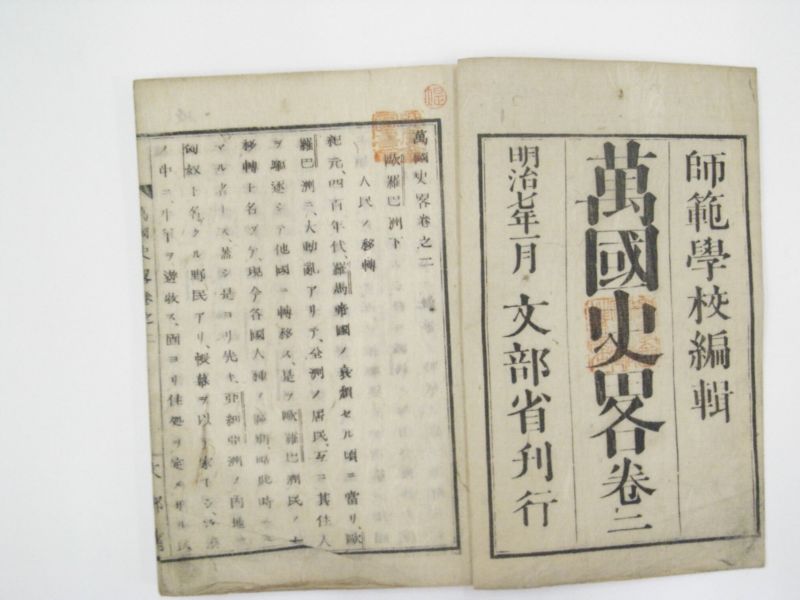 師範學校編輯
萬國史畧卷二
明治七年一月 文部省刊行
萬國史畧卷之二
歐羅巴洲下
人民ノ移轉
紀元四百年代、羅馬帝國ノ衰頽セル頃ニ當リ、歐
羅巴洲ニ大動亂アリテ、全洲ノ居民、互ニ其住人
ヲ驅逐シテ他國ニ轉移ス、是ヲ歐羅巴洲民ノ大
移轉ト名ツク、現今各國人種ノ
マル者トス、蓋シ是ヨリ先キ、亞細亞洲ノ內地ニ
匈奴ト名クル野民アリ、帳幕ヲ以テ家トシ、
ノ中ニ牛羊ヲ遊牧ス、固ヨリ住処ヲ定メサル民
萬國史畧卷之二